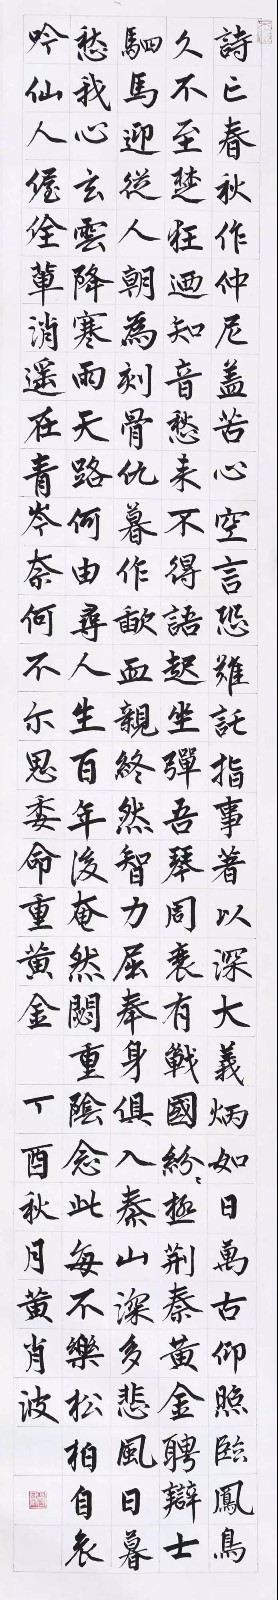 詩亡春秋作仲尼盖苦心空言恐難託指事著以深大義炳如日萬古仰照臨鳳鳥
久不至楚狂迺知音愁来不得語起坐彈吾琴周衰有戰國紛〻極荆秦黄金聘辯士
駟馬迎從人朝為刻骨仇暮作歃血親終然智力屈奉身俱入秦山深多悲風日暮
愁我心玄雲降寒雨天路何由尋人生百年後奄然閟重陰念此每不樂松柏自哀
吟仙人偓佺軰消遥在青岑奈何不尓思委命重黄金 丁酉秋月黄肖波